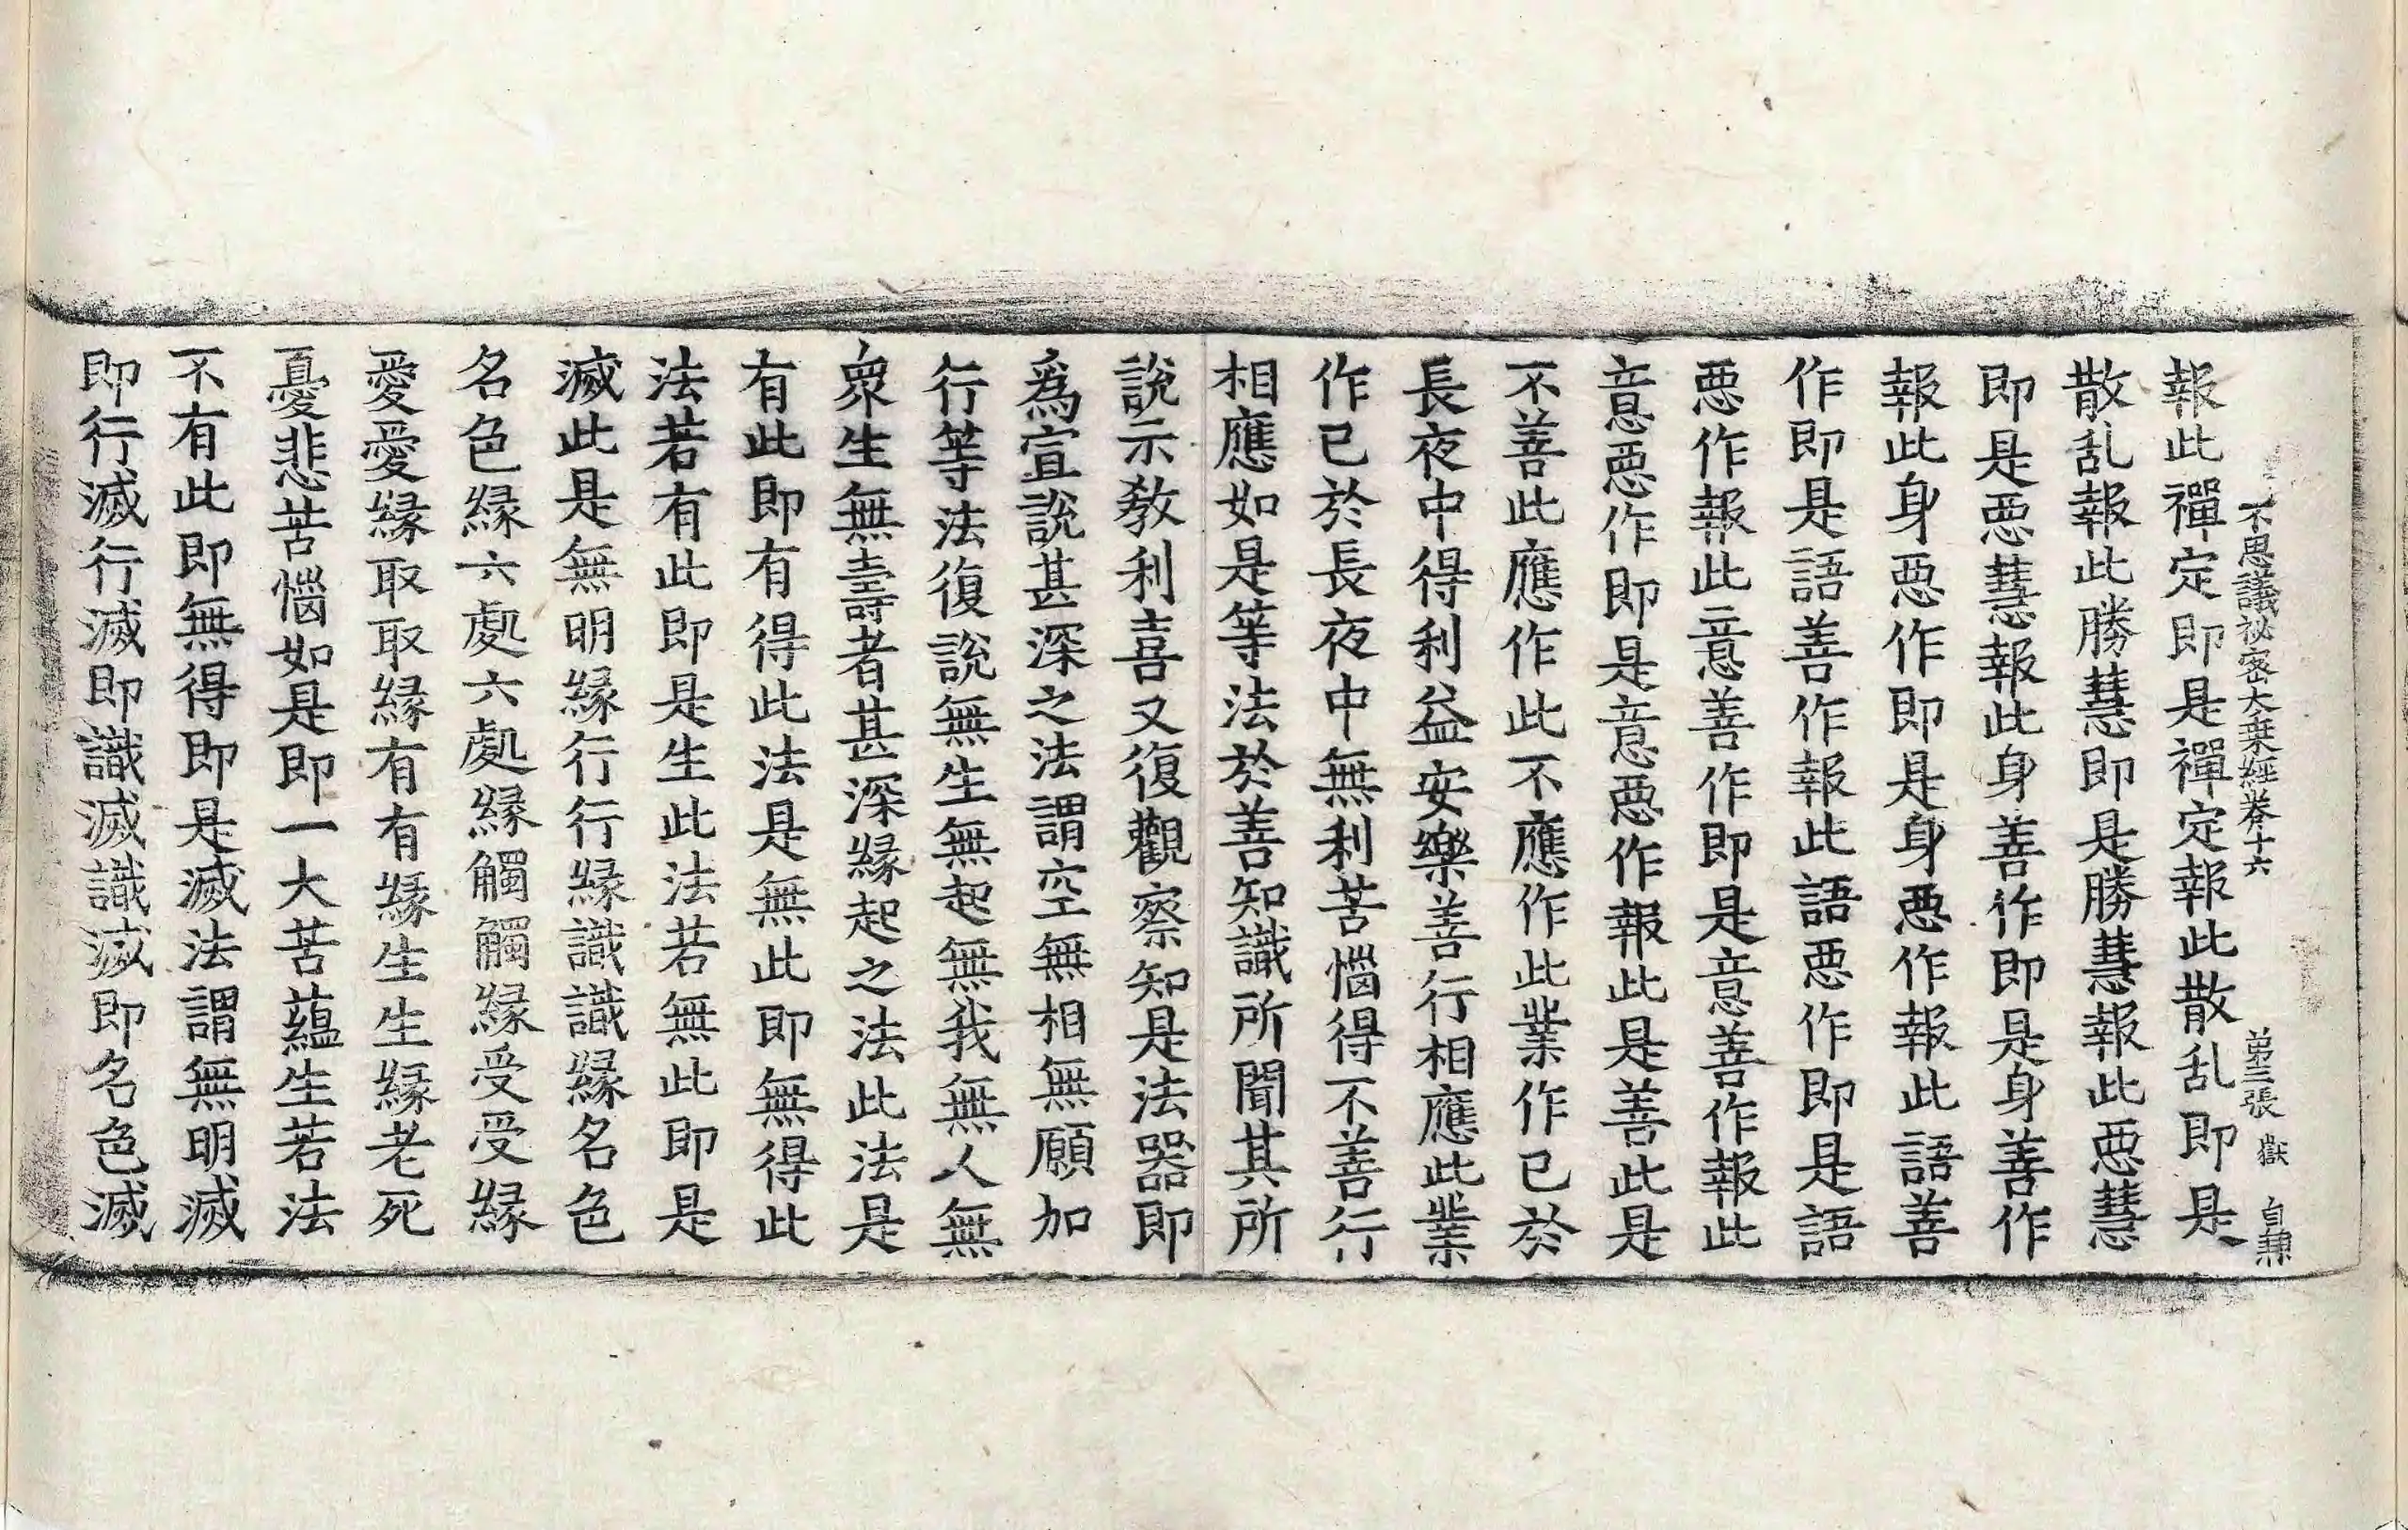 不思議祕密大乗經卷十六 第二張 獄
報此禪定即是禪定報此散乱即是
散乱報此勝慧即是勝慧報此惡慧
即是惡慧報此身善作即是身善作
報此身惡作即是身惡作報此語善
作即是語善作報此語惡作即是語
惡作報此意善作即是意善作報此
意惡作即是意惡作報此是善此是
不善此應作此不應作此業作已於
長夜中得利益安樂善行相應此業
作已於長夜中無利苦惱得不善行
相應如是等法於善知識所聞其所
說示教利喜又復觀察知是法器即
爲宣說甚深之法謂空無相無願加
行等法復說無生無起無我無人無
衆生無壽者甚深緣起之法此法是
有此即有得此法是無此即無得此
法若有此即是生此法若無此即是
滅此是無明緣行行緣識識緣名色
名色緣六處六處緣觸觸緣受受緣
愛愛緣取取緣有有緣生生緣老死
憂悲苦惱如是即一大苦蘊生若法
不有此即無得即是滅法謂無明滅
即行滅行滅即識滅識滅即名色滅